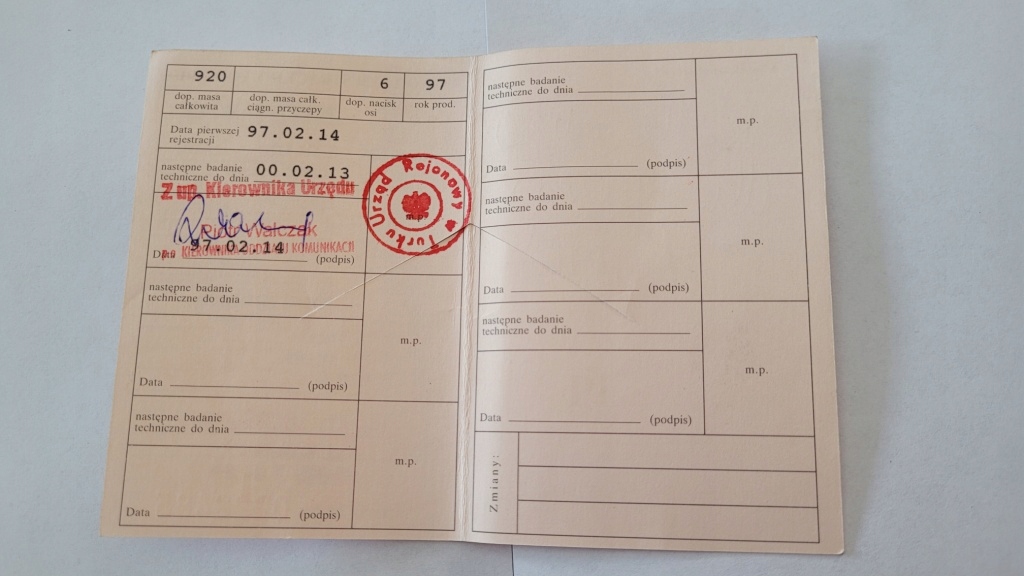 920 6 97
dop. masa całkowita dop. masa całk. ciągn. przyczepy dop. nacisk osi rok prod.
Data pierwszej rejestracji 97.02.14
następne badanie techniczne do dnia 00.02.13
Z up. Kierownika Urzędu
Urząd Rejonowy w Turku
m.p.
Piotr Walczak
Data 97.02.14 (podpis)
KIEROWNIKA ODDZIAŁU KOMUNIKACJI
następne badanie
techniczne do dnia
m.p.
Data (podpis)
następne badanie
techniczne do dnia
m.p.
Data (podpis)
następne badanie
techniczne do dnia
m.p.
Data (podpis)
następne badanie
techniczne do dnia
m.p.
Data (podpis)
następne badanie
techniczne do dnia
m.p.
Data (podpis)
Zmiany: